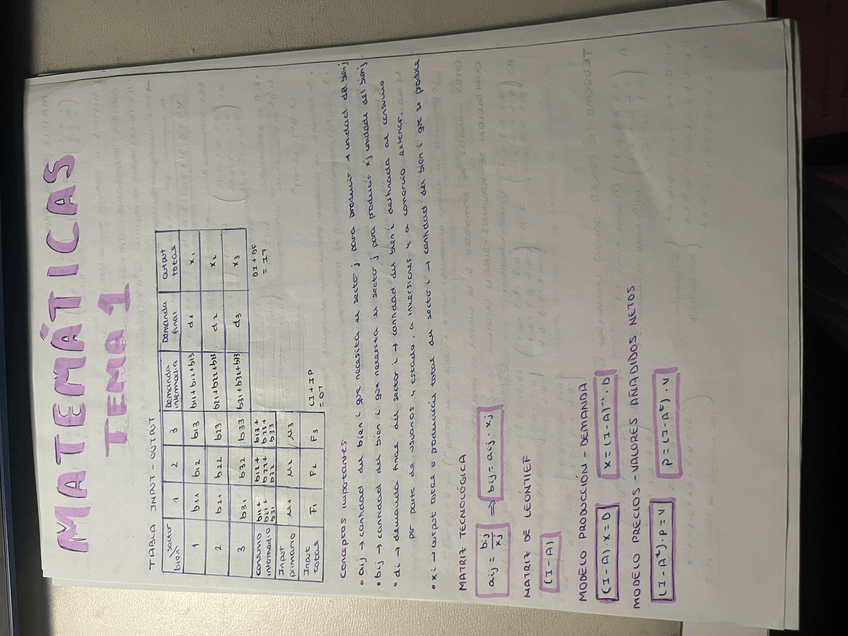 MATEMÁTICAS
TEMA 1
TABLA INPUT-OUTPUT
sector bien 1 2 3 Demanda intermedia Demanda final Output total
1 b11 b12 b13 b11+b12+b13 d1 x1
2 b21 b22 b23 b21+b22+b23 d2 x2
3 b31 b32 b33 b31+b32+b33 d3 x3
consumo intermedio b11+b21+b31 b12+b22+b32 b13+b23+b33 DI+DF
Input primario M1 M2 M3
Input total F1 F2 F3
Conceptos importantes
• aij → cantidad del bien i que necesita el sector j para producir 1 unidad del bien j
• bij → cantidad del bien i que necesita el sector j para producir xj unidade del bien j
• di → demanda final del sector i → cantidad del bien i destinada al consumo
por parte de usuarios y estado, a inversiones y a comercio exterior.
• xi → output total o producción total del sector i → cantidad del bien i que se produce
MATRIZ TECNOLÓGICA
aij = bij/xj ⇒ bij = aij · xj
MATRIZ DE LEONTIEF
(I-A)
MODELO PRODUCCIÓN-DEMANDA
(I-A)·x=D x=(I-A)⁻¹·D
MODELO PRECIOS-VALORES AÑADIDOS NETOS